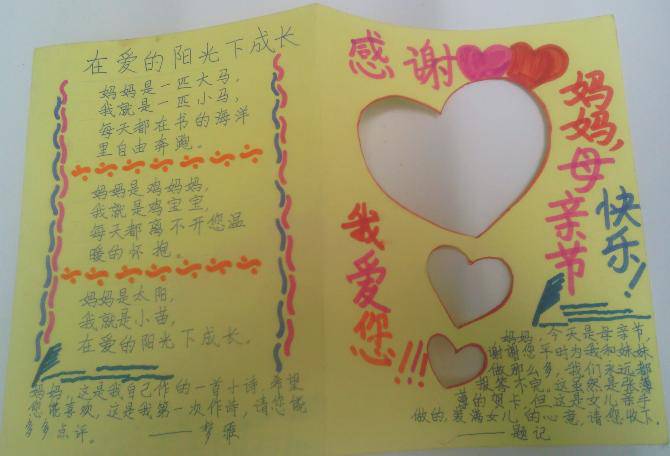 在爱的阳光下成长
妈妈是一匹大马，
我就是一匹小马，
每天都在书的海洋
里自由奔跑。
妈妈是鸡妈妈，
我就是鸡宝宝，
每天都离不开您温
暖的怀抱。
妈妈是太阳，
我就是小苗，
在爱的阳光下成长。
妈妈，这是我自己作的一首小诗，希望
您能喜欢，这是我第一次作诗，请您能
多多点评。
——梦雅
感谢
妈妈，母亲节
快乐！
我爱您!!!
妈妈，今天是母亲节，
谢谢您平时为我和妹妹
做那么多，我们永远都
报答不完。这虽然是张薄
薄的贺卡，但这是女儿亲手
做的，装满女儿的心意，请您收下。
——题记